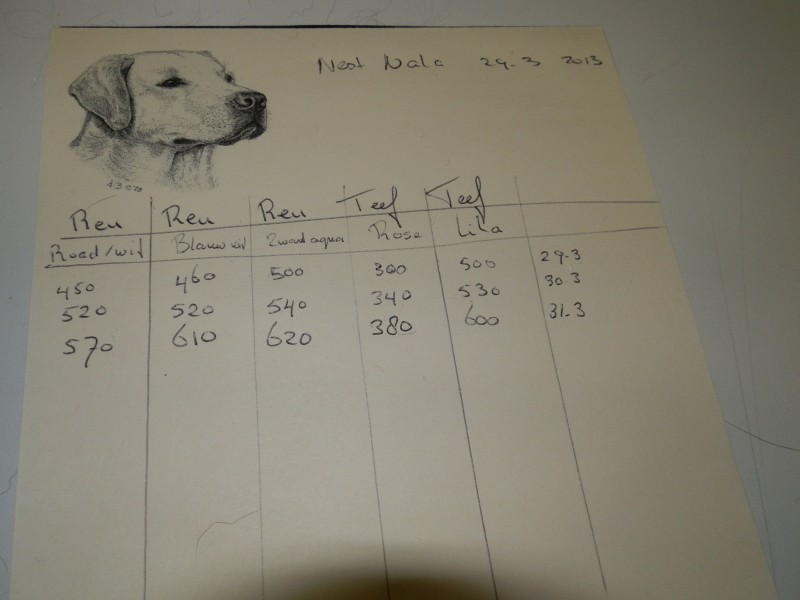 Nest Nala 29-3 2013
Reu Reu Reu Teef Teef
Rood/wit Blauw wit Zwart aqua Rose Lila
450 460 500 300 500 29-3
520 520 540 340 530 30-3
570 610 620 380 600 31-3